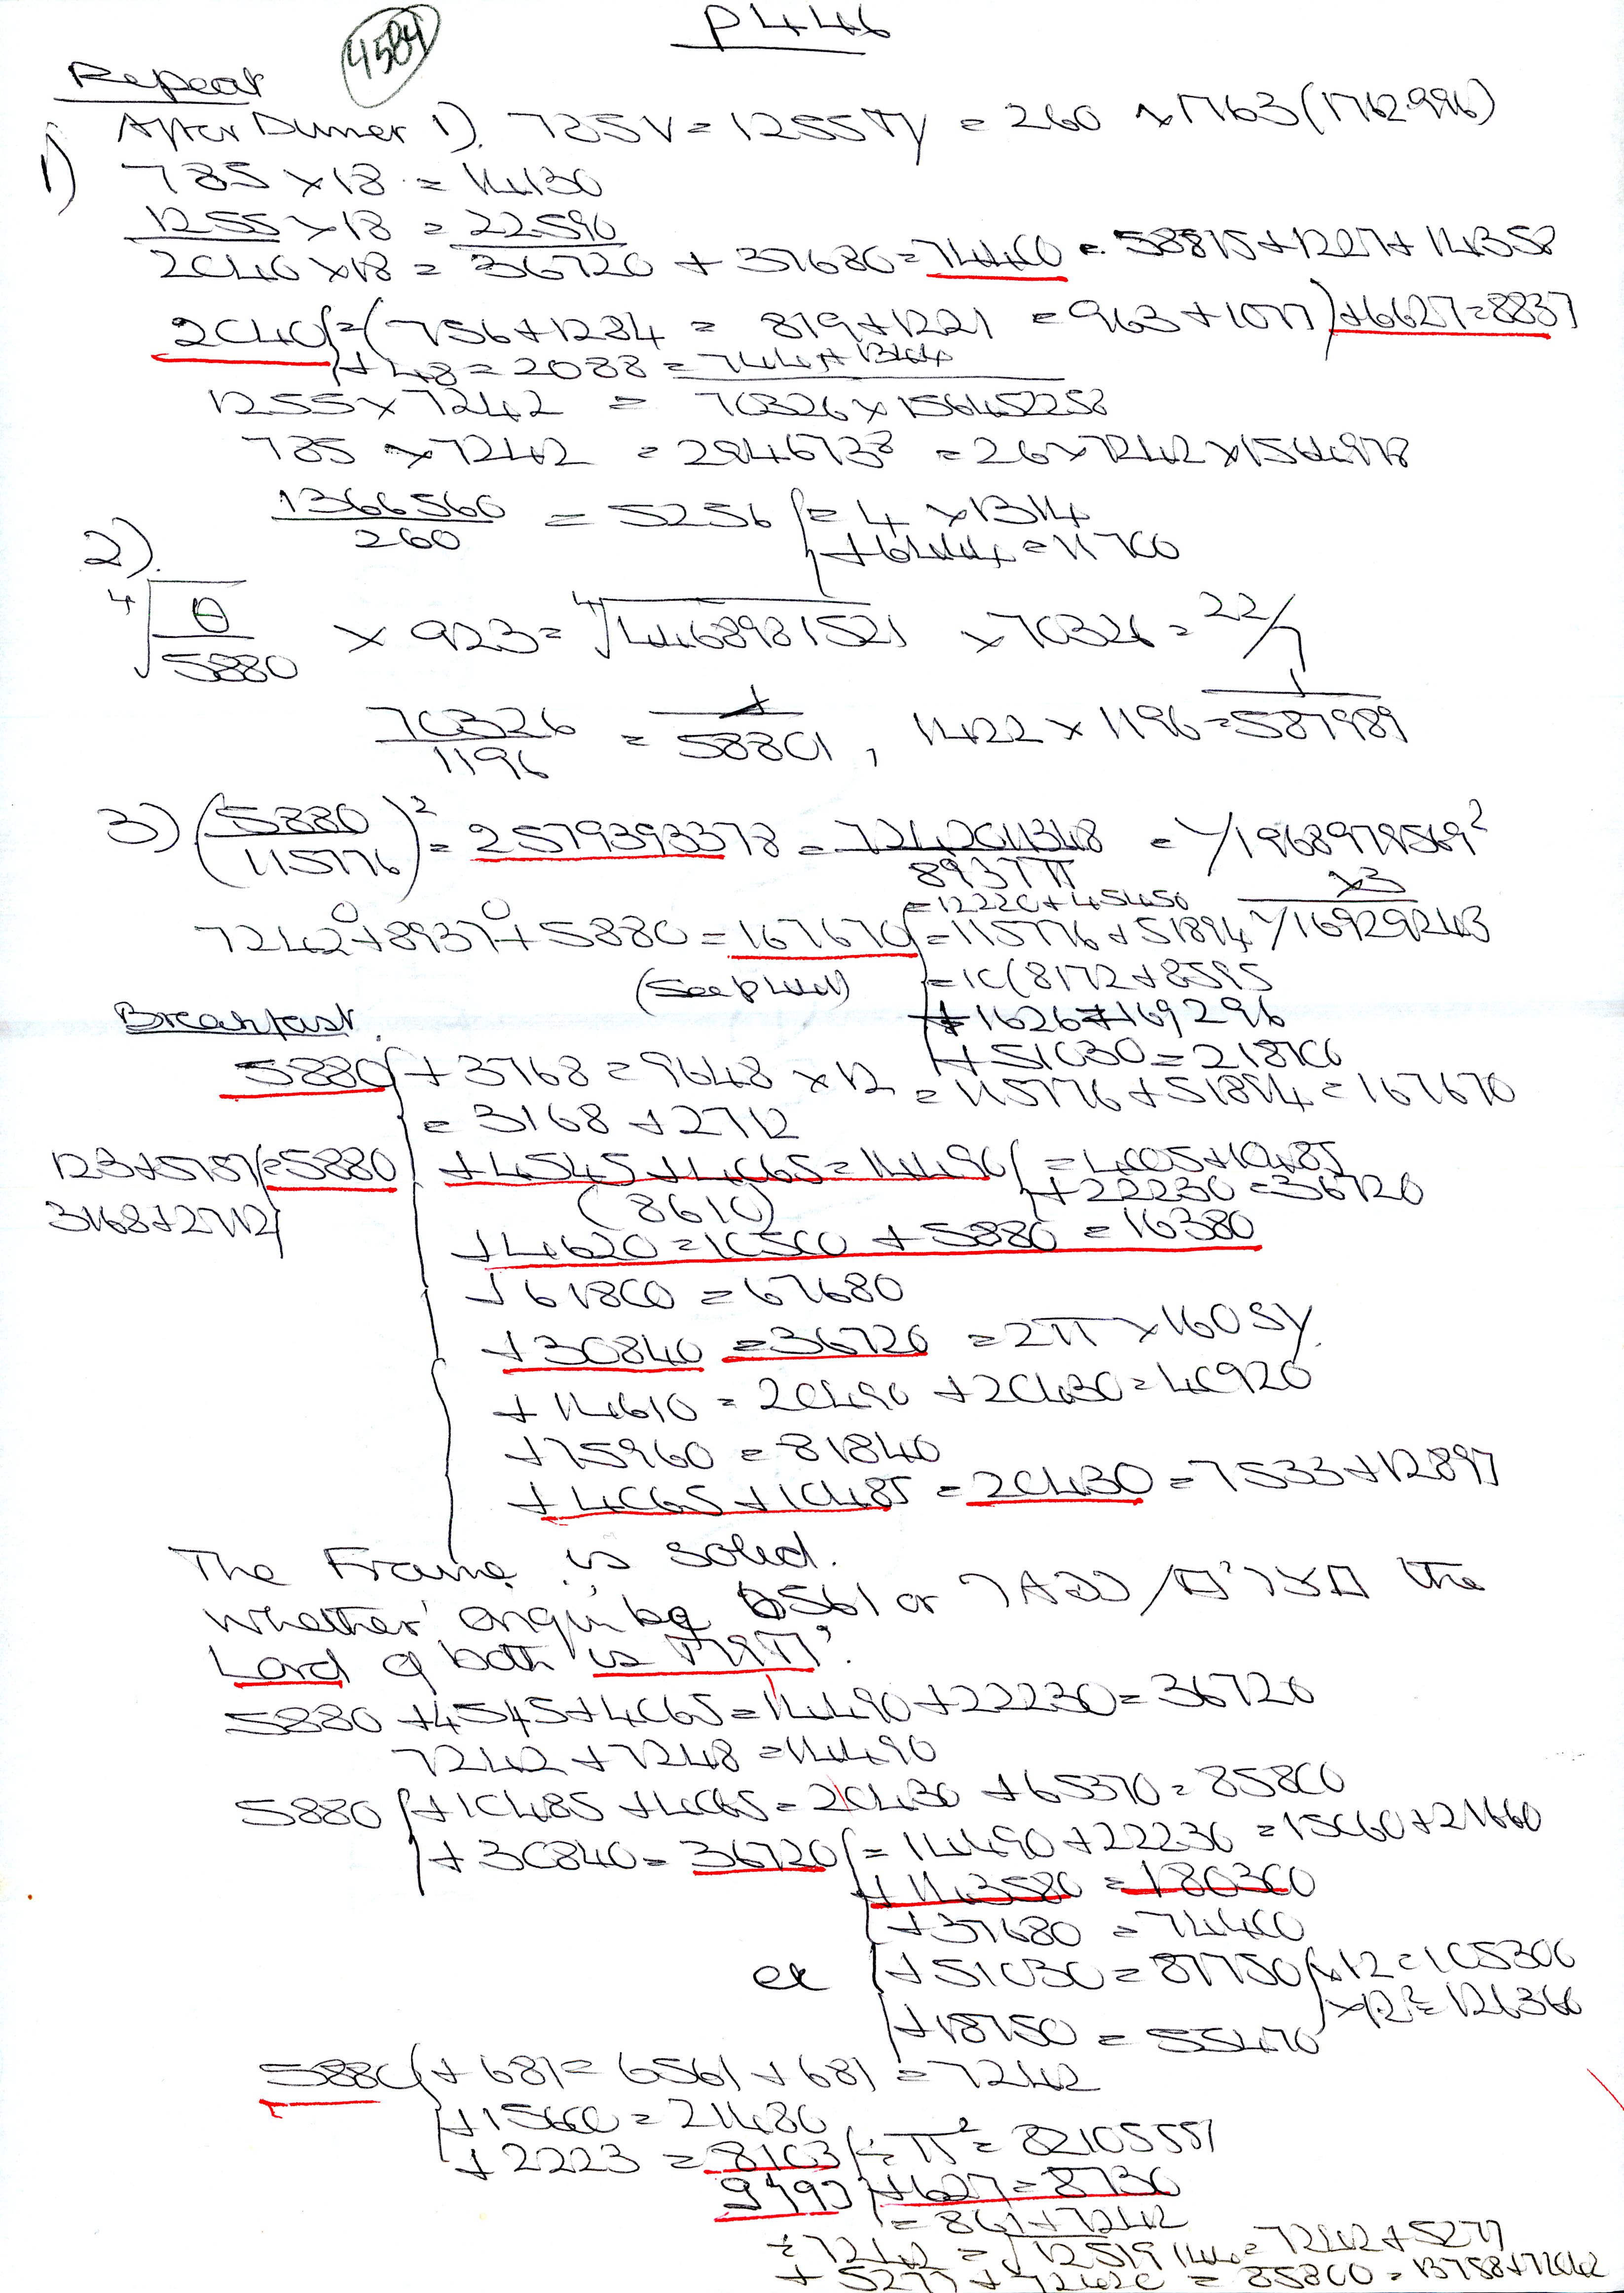 P446
4584
Repeat
1) After Dinner 1). 785V = 1255Ty = 260 x 1763 (1762.996)
785 x 18 = 14130
1255 x 18 = 22590
2040 x 18 = 36720 + 37680 = 74400 = 58815 + 1227 + 14358
2040 = (756 + 1284 = 819 + 1221 = 963 + 1077) + 6627 = 8837
+ 48 = 2088 = 744 + 1344
1255 x 7242 = 70326 x 156452258
785 x 7242 = 2846738 = 26 x 7242 x 1564978
2). 1366560/260 = 5256 = 4 x 1314
+ 6444 = 11700
4√θ/5880 x 923 = 4√4468981521 x 70326 = 22/7
70326/1196 = 1/58801, 1422 x 1196 = 1/587989
3) (5880/115776)² = 2579393378 = 7242011348/8937π = y/1968979569²
x3
= 12220 + 45450
7242° + 8937° + 5880 = 167670 = 115776 + 51894 y/169292413
(See p                = 10(8172 + 8595
+ 1626 = 169296
Breakfast
+ 51030 = 218700
5880 + 3768 = 9648 x 12 = 115776 + 51894 = 167670
= 3168 + 2712
123 + 5757 = 5880
+ 4545 + 4065 = 14490 = 4005 + 10485
+ 22230 = 36720
3168 + 2712
(8610)
+ 4620 = 10500 + 5880 = 16380
+ 61800 = 67680
+ 30840 = 36720 = 2π x 160 Sy.
+ 14610 = 20490 + 20430 = 40920
+ 75960 = 81840
+ 4065 + 10485 = 20430 = 7533 + 12897
The Frame is solid.
Whether origin be 6561 or the
Lord of both is
5880 + 4545 + 4065 = 14490 + 22230 = 36720
7242 + 7248 = 14490
5880 + 10485 + 4065 = 20430 + 65370 = 85800
+ 30840 = 36720 = 14490 + 22230 = 15060 + 21660
+ 143580 = 180300
+ 37680 = 74400
ex + 51030 = 87750 x 12 = 105300
x 12² = 126360
+ 18750 = 55470
5880 + 681 = 6561 + 681 = 7242
+ 15600 = 21480
+ 2223 = 8103 ÷ π² = 82105557
+ 627 = 8730
= 861 + 7242
÷ 7242 = √12519 144 = 7242 + 5277
+ 5277 + 72420 = 85800 = 13758 + 72042